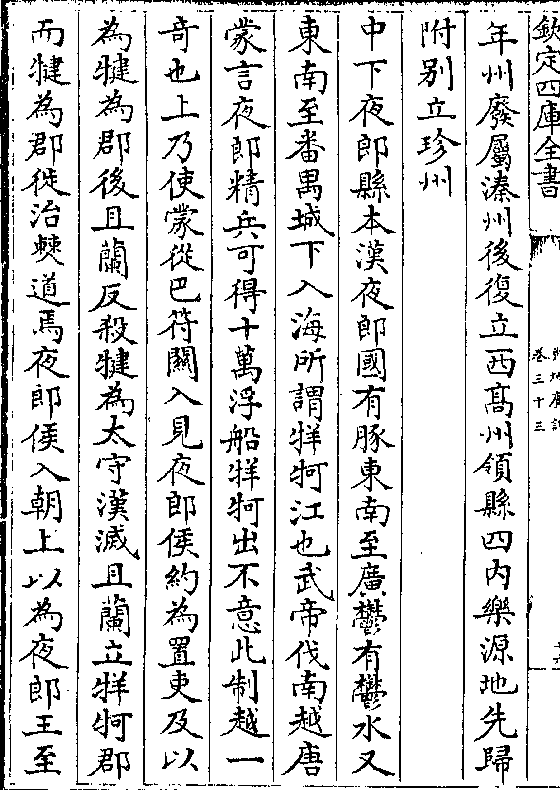 欽定四庫全書
卷三十三
年州廢屬溱州後復立西髙州領縣四内樂源地先歸
附别立珍州
中下夜郎縣本漢夜郎國有豚東南至廣鬱有鬱水又
東南至番禺城下入海所謂牂牁江也武帝伐南越唐
蒙言夜郎精兵可得十萬浮船牂牁出不意此制越一
竒也上乃使蒙從巴符關入見夜郎侯約為置吏及以
為犍為郡後且蘭反殺犍為太守漢滅且蘭立牂牁郡
而犍為郡徙治僰道焉夜郎侯入朝上以為夜郎王至